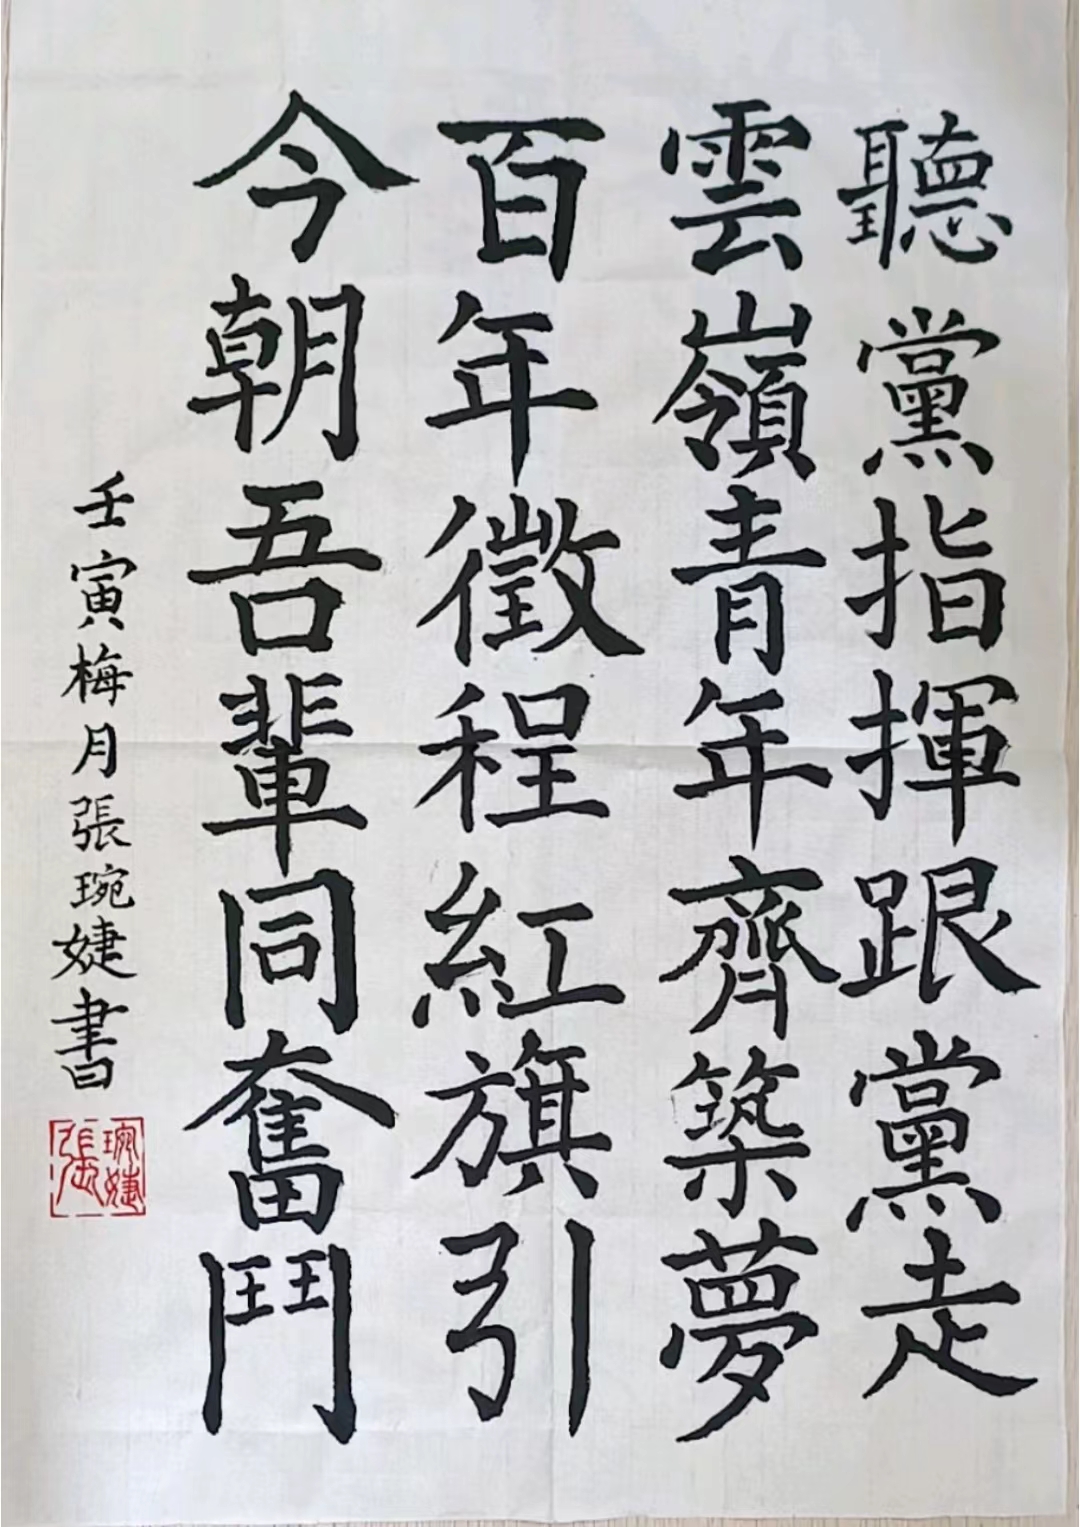 聽黨指揮跟黨走
雲嶺青年齊築夢
百年徵程紅旗引
今朝吾輩同奮鬥
壬寅梅月張琬婕書
張琬婕